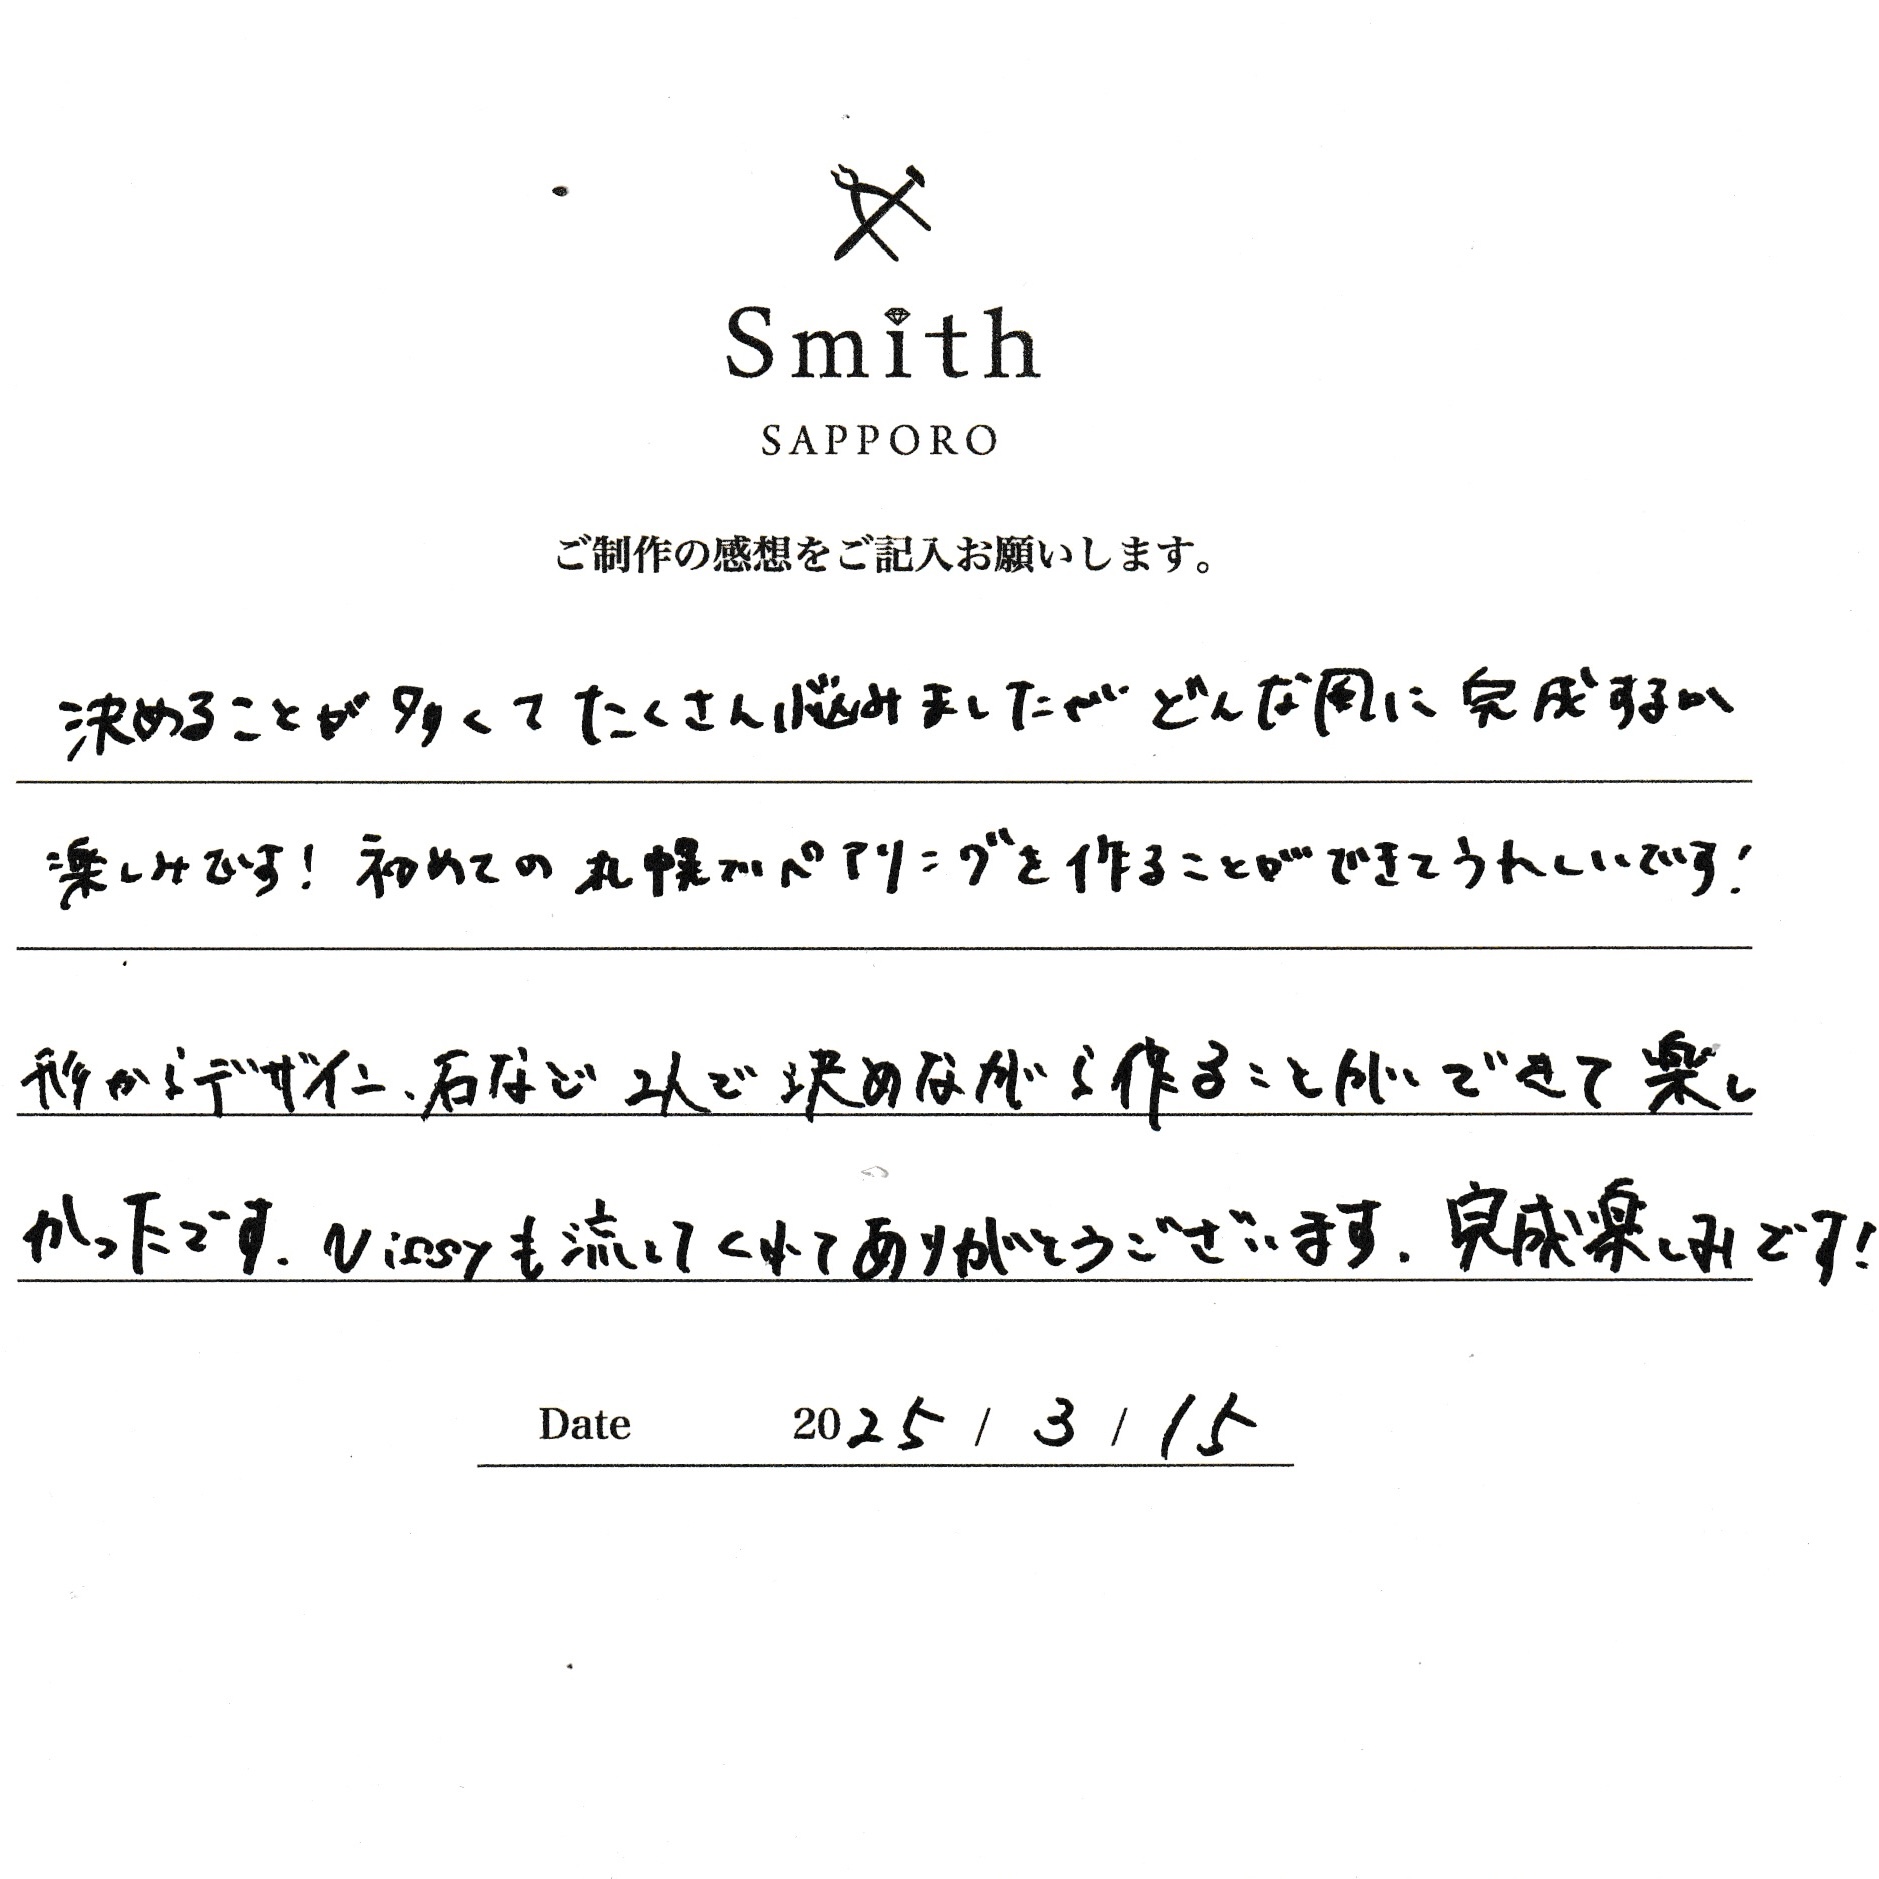 Smith
SAPPORO
ご制作の感想をご記入お願いします。
決めることが多くてたくさん悩みましたがどんな風に完成するか
楽しみです！初めての札幌でペアリングを作ることができてうれしいです！
形からデザイン、石など2人で決めながら作ることができて楽し
かったです。Nissyも流してくれてありがとうございます。完成楽しみです！
Date 2025 / 3 / 15